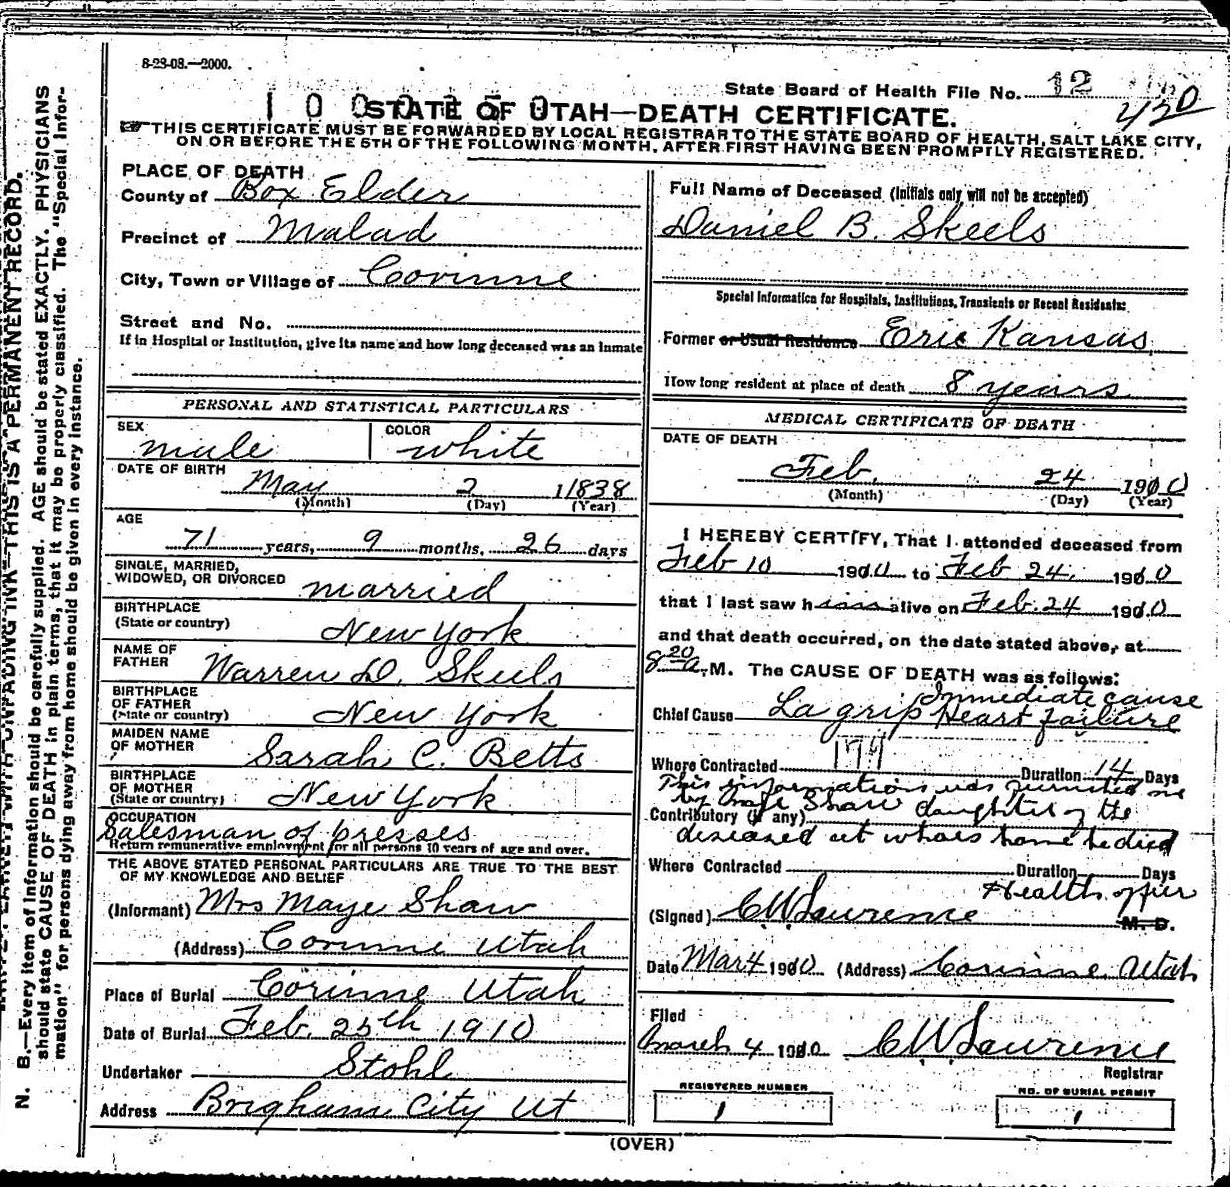 8-23-08.—2000.
State Board of Health File No. 12
420
STATE OF UTAH—DEATH CERTIFICATE.
THIS CERTIFICATE MUST BE FORWARDED BY LOCAL REGISTRAR TO THE STATE BOARD OF HEALTH, SALT LAKE CITY,
ON OR BEFORE THE 5TH OF THE FOLLOWING MONTH, AFTER FIRST HAVING BEEN PROMPTLY REGISTERED.
PLACE OF DEATH
County of Box Elder
Precinct of Malad
City, Town or Village of Corinne
Street and No.
If in Hospital or Institution, give its name and how long deceased was an inmate
PERSONAL AND STATISTICAL PARTICULARS
SEX male COLOR white
DATE OF BIRTH May 2 1838
(Month) (Day) (Year)
AGE 71 years, 9 months, 26 days
SINGLE, MARRIED,
WIDOWED, OR DIVORCED married
BIRTHPLACE
(State or country) New York
NAME OF
FATHER Warren D. Skeels
BIRTHPLACE
OF FATHER
(State or country) New York
MAIDEN NAME
OF MOTHER Sarah C. Betts
BIRTHPLACE
OF MOTHER
(State or country) New York
OCCUPATION
Salesman of presses
Return remunerative employment for all persons 10 years of age and over.
THE ABOVE STATED PERSONAL PARTICULARS ARE TRUE TO THE BEST
OF MY KNOWLEDGE AND BELIEF
(Informant) Mrs Maye Shaw
(Address) Corinne Utah
Place of Burial Corinne Utah
Date of Burial Feb. 25th 1910
Undertaker Stohl
Address Brigham City Ut
Full Name of Deceased (Initials only will not be accepted)
Daniel B. Skeels
Special Information for Hospitals, Institutions, Transients or Recent Residents:
Former or Usual Residence Erie Kansas
How long resident at place of death 8 years
MEDICAL CERTIFICATE OF DEATH
DATE OF DEATH
Feb. 24 1910
(Month) (Day) (Year)
I HEREBY CERTIFY, That I attended deceased from
Feb 10 1910 to Feb 24, 1910
that I last saw him alive on Feb. 24 1910
and that death occurred, on the date stated above, at
8 20 a. M. The CAUSE OF DEATH was as follows:
Immediate cause
Chief Cause La grip Heart failure
179
Where Contracted Duration 14 Days
This information was furnished me
by Maye Shaw daughter of the
Contributory (if any)
diseased at whoes home he died
Where Contracted Duration Days
Health officer
(Signed) CW Lawrence M. D.
Date Mar 4 1910 (Address) Corinne, Utah
Filed
March 4 1910 CW Lawrence
Registrar
REGISTERED NUMBER
1
NO. OF BURIAL PERMIT
1
(OVER)
N. B.—Every item of information should be carefully supplied. AGE should be stated EXACTLY. PHYSICIANS
should state CAUSE OF DEATH in plain terms, that it may be properly classified. The "Special Infor-
mation" for persons dying away from home should be given in every instance.
UNFADING INK—THIS IS A PERMANENT RECORD.